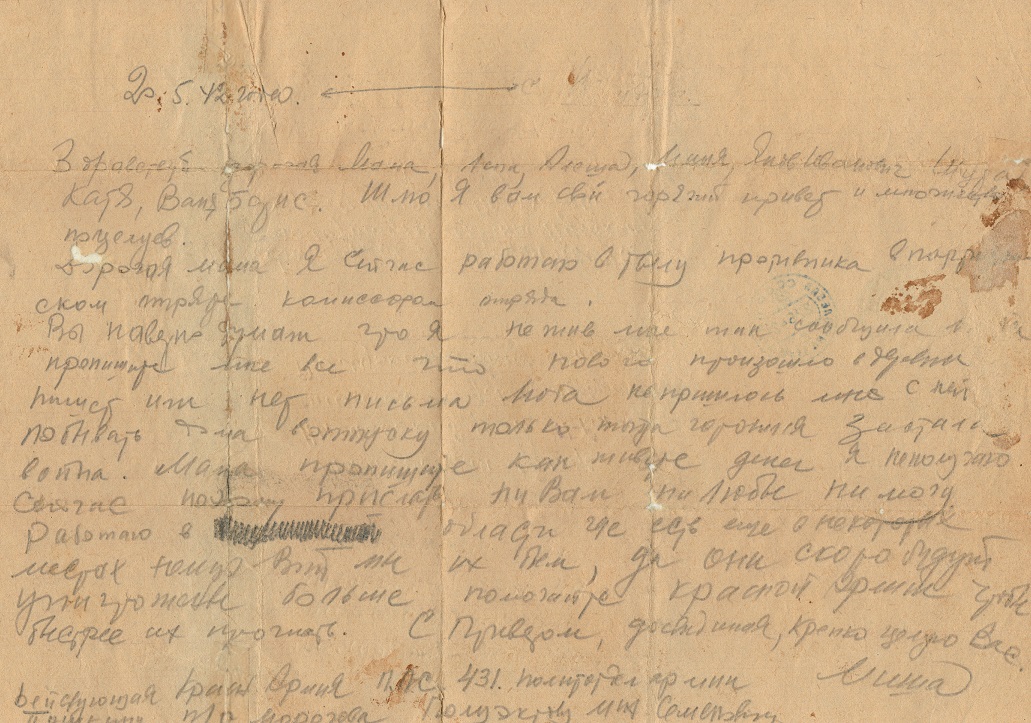 20.5.42 года.
Здравствуй дорогая Мама, Леша, Маня, Яков Иванович Шура
Катя, Ваня, Борис. Шлю Я вам свой горячий привет и множество
поцелуев.
Дорогая мама Я сейчас работаю в тылу противника
ском отряде комиссаром отряда.
Вы наверно думали что я не жив мне так сообщила
пропишите мне все что нового произошло в деревни
пишет или нет письма не пришлось мне с ней
побывать дома в отпуску только тогда застала
война. Мама пропишите как живете денег Я неполучаю
сейчас поэтому прислать ни Вам ни Любе ни могу
Работаю в области где есть еще в некоторые
местах немцы Вот мы их бьем, да они скоро будут
уничтожены больше помогайте красной Армии чтобы
быстрее их прогнать. С Приветом, досвидиния, крепко целую Вас.
Миша
Действующая Красн Армия ППС 431. политотдел армии